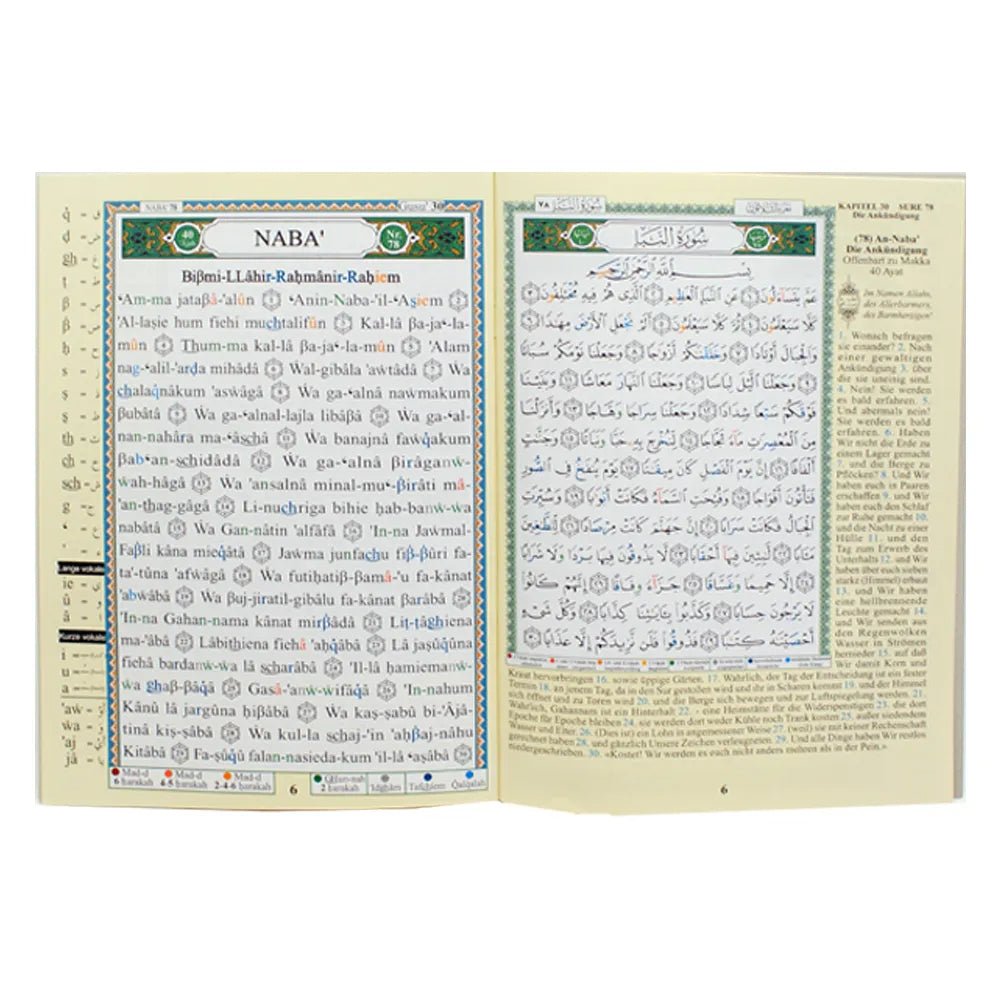 NABA' 78
Guzuu' 30
40
NABA'
Nr. 78
Bißmi-LLâhir-Raḥmânir-Raḥiem
ʿAm-ma jataßâ-'alûn 1 ʿAnin-Naba-'il-ʿAṣiem 2
'Al-laṣie hum fiehi muchtalifûn 3 Kal-lâ ßa-jaʿ-la-
mûn 4 Thum-ma kal-lâ ßa-jaʿ-la-mûn 5 'Alam
nag-ʿalil-'arḍa mihâdâ 6 Wal-gibâla 'aẇtâdâ 7 Ẇa
chalaq̇nâkum 'aswâgâ 8 Ẇa ga-ʿalnâ naẇmakum
ßubâtâ 9 Ẇa ga-ʿalnal-lajla libâßâ 10 Ẇa ga-ʿal-
nan-nahâra ma-ʿâschâ 11 Ẇa banajna faẇq̇akum
ßabʿan-schidâdâ 12 Ẇa ga-ʿalnâ ßirâganẇ-
ẇah-hâgâ 13 Ẇa 'ansalnâ minal-muʿ-ßirâti mâ-
'an-thag-gâgâ 14 Li-nuchriga bihie ḥab-banẇ-ẇa
nabâtâ 15 Ẇa Gan-nâtin 'alfâfâ 16 'In-na Jaẇmal-
Faßli kâna mieq̇âtâ 17 Jaẇma junfachu fiß-ßûri fa-
ta'-tûna 'afẇâgâ 18 Ẇa futiḥatiß-ßamâ-'u fa-kânat
'abẇâbâ 19 Ẇa ßuj-jiratil-gibâlu fa-kânat ßarâbâ 20
'In-na Gahan-nama kânat mirßâdâ 21 Liṭ-ṭâghiena
ma-'âbâ 22 Lâbithiena fiehâ 'aḥq̇âbâ 23 Lâ jaṣûq̇ûna
fiehâ bardanẇ-ẇa lâ scharâbâ 24 'Il-lâ ḥamiemanẇ-
ẇa ghaß-ßâq̇â 25 Gasâ-'anẇ-ẇifâq̇â 26 'In-nahum
Kânû lâ jargûna ḥißâbâ 27 Ẇa kaṣ-ṣabû bi-'Âjâ-
tinâ kiṣ-ṣâbâ 28 Ẇa kul-la schaj-'in 'aḥßaj-nâhu
Kitâbâ 29 Fa-ṣûq̇û falan-nasieda-kum 'il-lâ ʿaṣâbâ 30
Lange vokale
ie =
û =
â =
Kurze vokale
i =
u =
a =
'aẇ =
ẇa =
'aj =
jâ =
Mad-d 6 ḥarakah
Mad-d 4-5 ḥarakah
Mad-d 2-4-6 ḥarakah
Ghun-nah 2 ḥarakah
'Idghâm
Tafchiem
Qalqalah
6
٧٨
سُورَةُ النَّبَإِ
سُورَةُ النَّبَإِ
بِسْمِ اللَّهِ الرَّحْمَٰنِ الرَّحِيمِ
عَمَّ يَتَسَاءَلُونَ ١ عَنِ النَّبَإِ الْعَظِيمِ ٢ الَّذِي هُمْ فِيهِ مُخْتَلِفُونَ ٣
كَلَّا سَيَعْلَمُونَ ٤ ثُمَّ كَلَّا سَيَعْلَمُونَ ٥ أَلَمْ نَجْعَلِ الْأَرْضَ مِهَٰدًا ٦
وَالْجِبَالَ أَوْتَادًا ٧ وَخَلَقْنَٰكُمْ أَزْوَٰجًا ٨ وَجَعَلْنَا نَوْمَكُمْ سُبَاتًا
٩ وَجَعَلْنَا الَّيْلَ لِبَاسًا ١٠ وَجَعَلْنَا النَّهَارَ مَعَاشًا ١١ وَبَنَيْنَا
فَوْقَكُمْ سَبْعًا شِدَادًا ١٢ وَجَعَلْنَا سِرَاجًا وَهَّاجًا ١٣ وَأَنزَلْنَا
مِنَ الْمُعْصِرَٰتِ مَاءً ثَجَّاجًا ١٤ لِّنُخْرِجَ بِهِ حَبًّا وَنَبَاتًا ١٥ وَجَنَّٰتٍ
أَلْفَافًا ١٦ إِنَّ يَوْمَ الْفَصْلِ كَانَ مِيقَٰتًا ١٧ يَوْمَ يُنفَخُ فِي الصُّورِ
فَتَأْتُونَ أَفْوَاجًا ١٨ وَفُتِحَتِ السَّمَاءُ فَكَانَتْ أَبْوَٰبًا ١٩ وَسُيِّرَتِ
الْجِبَالُ فَكَانَتْ سَرَابًا ٢٠ إِنَّ جَهَنَّمَ كَانَتْ مِرْصَادًا ٢١ لِّلطَّٰغِينَ
مَـَٔابًا ٢٢ لَّٰبِثِينَ فِيهَا أَحْقَابًا ٢٣ لَّا يَذُوقُونَ فِيهَا بَرْدًا وَلَا شَرَابًا
٢٤ إِلَّا حَمِيمًا وَغَسَّاقًا ٢٥ جَزَاءً وِفَاقًا ٢٦ إِنَّهُمْ كَانُوا
لَا يَرْجُونَ حِسَابًا ٢٧ وَكَذَّبُوا بِـَٔايَٰتِنَا كِذَّابًا ٢٨ وَكُلَّ شَيْءٍ
أَحْصَيْنَٰهُ كِتَٰبًا ٢٩ فَذُوقُوا فَلَن نَّزِيدَكُمْ إِلَّا عَذَابًا ٣٠
KAPITEL 30 SURE 78
Die Ankündigung
(78) An-Naba'
Die Ankündigung
Offenbart zu Makka
40 Ayat
Im Namen Allahs,
des Allerbarmers,
des Barmherzigen!
1. Wonach befragen
sie einander? 2. Nach
einer gewaltigen
Ankündigung 3. über
die sie uneinig sind.
4. Nein! Sie werden
es bald erfahren. 5.
Und abermals nein!
Sie werden es bald
erfahren. 6. Haben
Wir nicht die Erde zu
einem Lager gemacht
7. und die Berge zu
Pflöcken? 8. Und Wir
haben euch in Paaren
erschaffen 9. und Wir
haben euch den Schlaf
zur Ruhe gemacht 10.
und die Nacht zu einer
Hülle 11. und den
Tag zum Erwerb des
Unterhalts 12. und Wir
haben über euch sieben
starke (Himmel) erbaut
13. und Wir haben
eine hellbrennende
Leuchte gemacht 14.
und Wir senden aus
den Regenwolken
Wasser in Strömen
hernieder 15. auf daß
Wir damit Korn und
Kraut hervorbringen 16. sowie üppige Gärten. 17. Wahrlich, der Tag der Entscheidung ist ein fester
Termin 18. an jenem Tag, da in den Sur gestoßen wird und ihr in Scharen kommt 19. und der Himmel
sich öffnet und zu Toren wird 20. und die Berge sich bewegen und zur Luftspiegelung werden. 21.
Wahrlich, Gahannam ist ein Hinterhalt 22. - eine Heimstätte für die Widerspenstigen 23. die dort
Epoche für Epoche bleiben 24. sie werden dort weder Kühle noch Trank kosten 25. außer siedendem
Wasser und Eiter. 26. (Dies ist) ein Lohn in angemessener Weise 27. (weil) sie mit keiner Rechenschaft
gerechnet haben 28. und gänzlich Unsere Zeichen verleugneten. 29. Und alle Dinge haben Wir restlos
niedergeschrieben. 30. «Kostet! Wir werden es euch nicht anders mehren als in der Pein.»
6